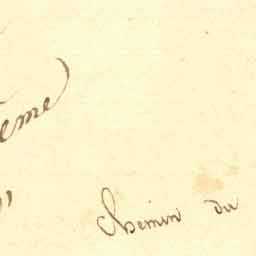 eme
Chemin du